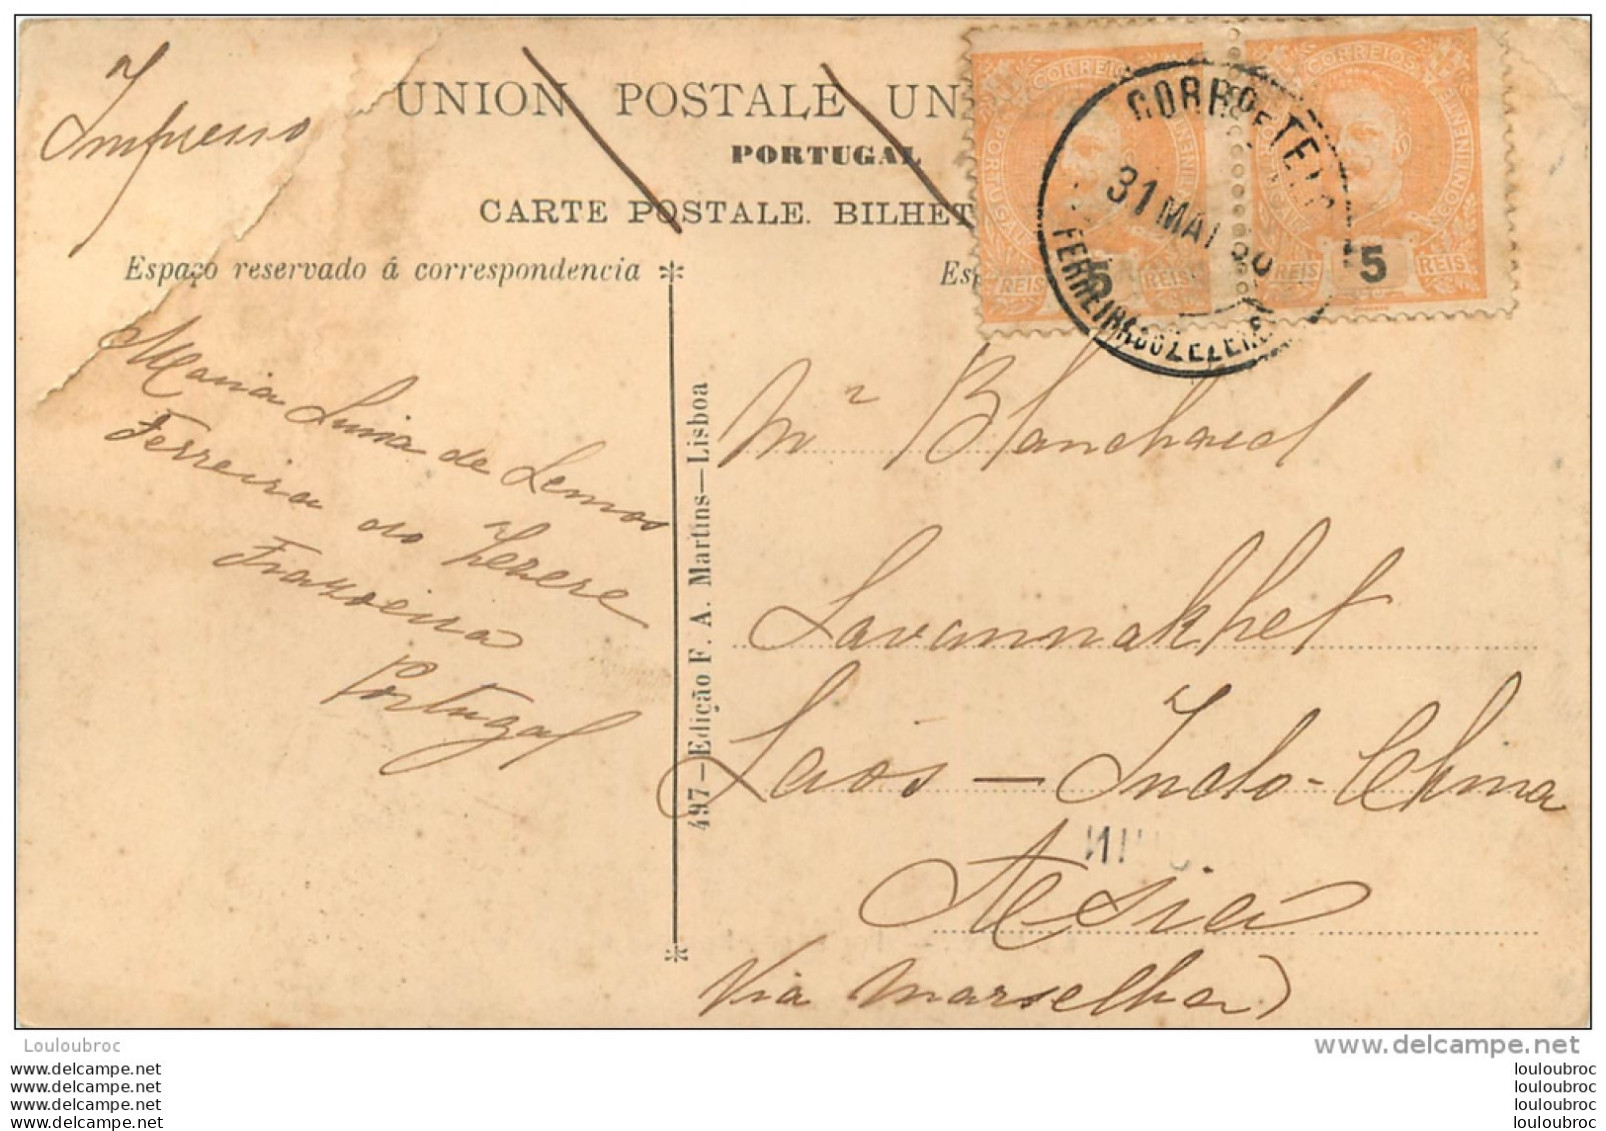 Impresso
UNION POSTALE UN
PORTUGAL
CARTE POSTALE. BILHET
Espaço reservado á correspondencia
Esp
CORREIOS
CORREIOS
PORTUGAL
CONTINENTE
REIS 5 REIS
REIS 5 REIS
CORRO E TELEG
31 MAI
FERREIRA DO ZEZERE
Maria Luiza de Lemos
Ferreira do Zezere
Frazoeira
Portugal
497—Edição F. A. Martins—Lisboa
Mr Blanchard
Savannakhet
Laós — Indo-China
Asia
Via Marselha
Louloubroc
www.delcampe.net
www.delcampe.net
www.delcampe.net
www.delcampe.net
www.delcampe.net
louloubroc
louloubroc
louloubroc
louloubroc